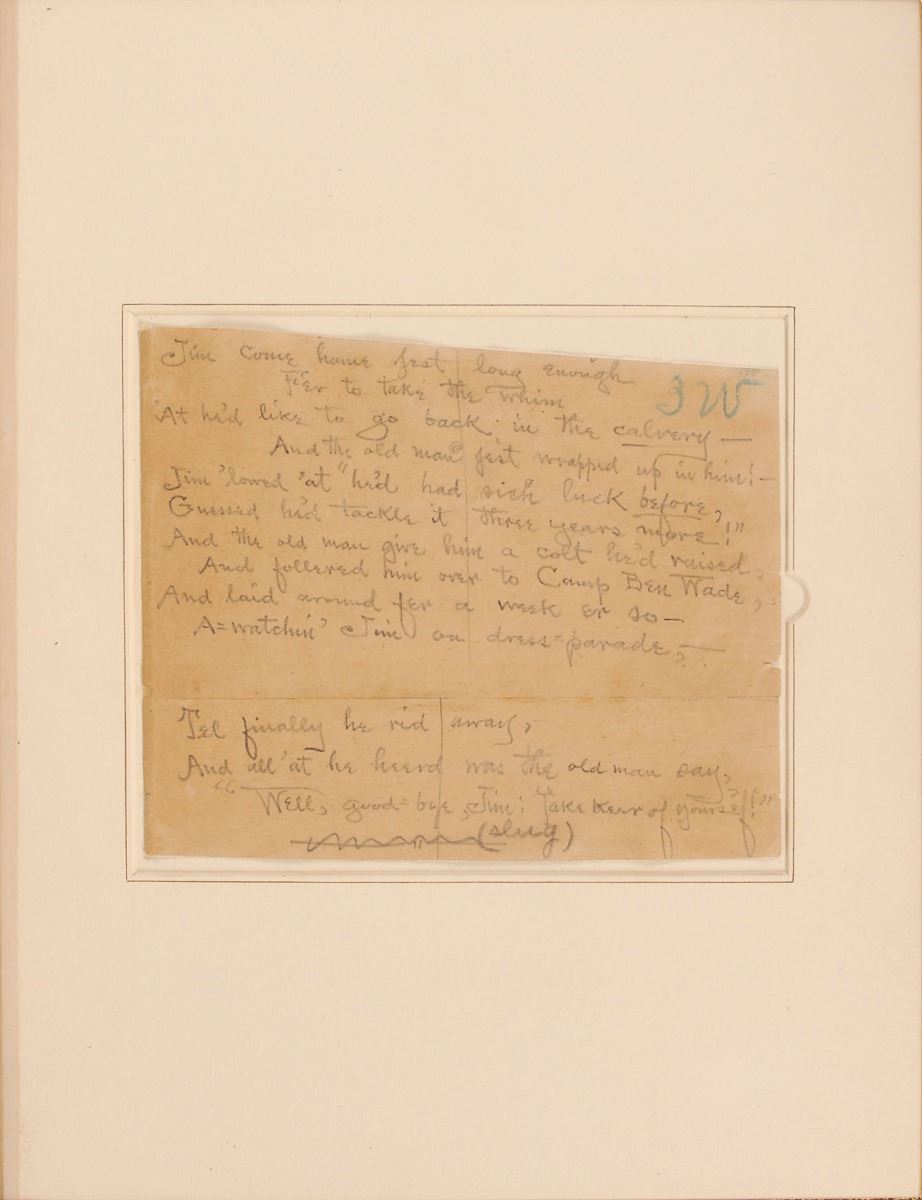 Jim come home jest long enough
Fer to take the whim
'At he'd like to go back in the calvery —
And the old man jest wrapped up in him! —
Jim 'lowed 'at "he'd had sich luck before,
Guessed he'd tackle it three years more!"
And the old man give him a colt he'd raised,
And follered him over to Camp Ben Wade,
And laid around fer a week er so —
A=watchin' Jim on dress=parade, —
Tel finally he rid away,
And all 'at he heerd was the old man say,
"Well, good=bye, Jim: Take keer of yourse'f!"
(slug)